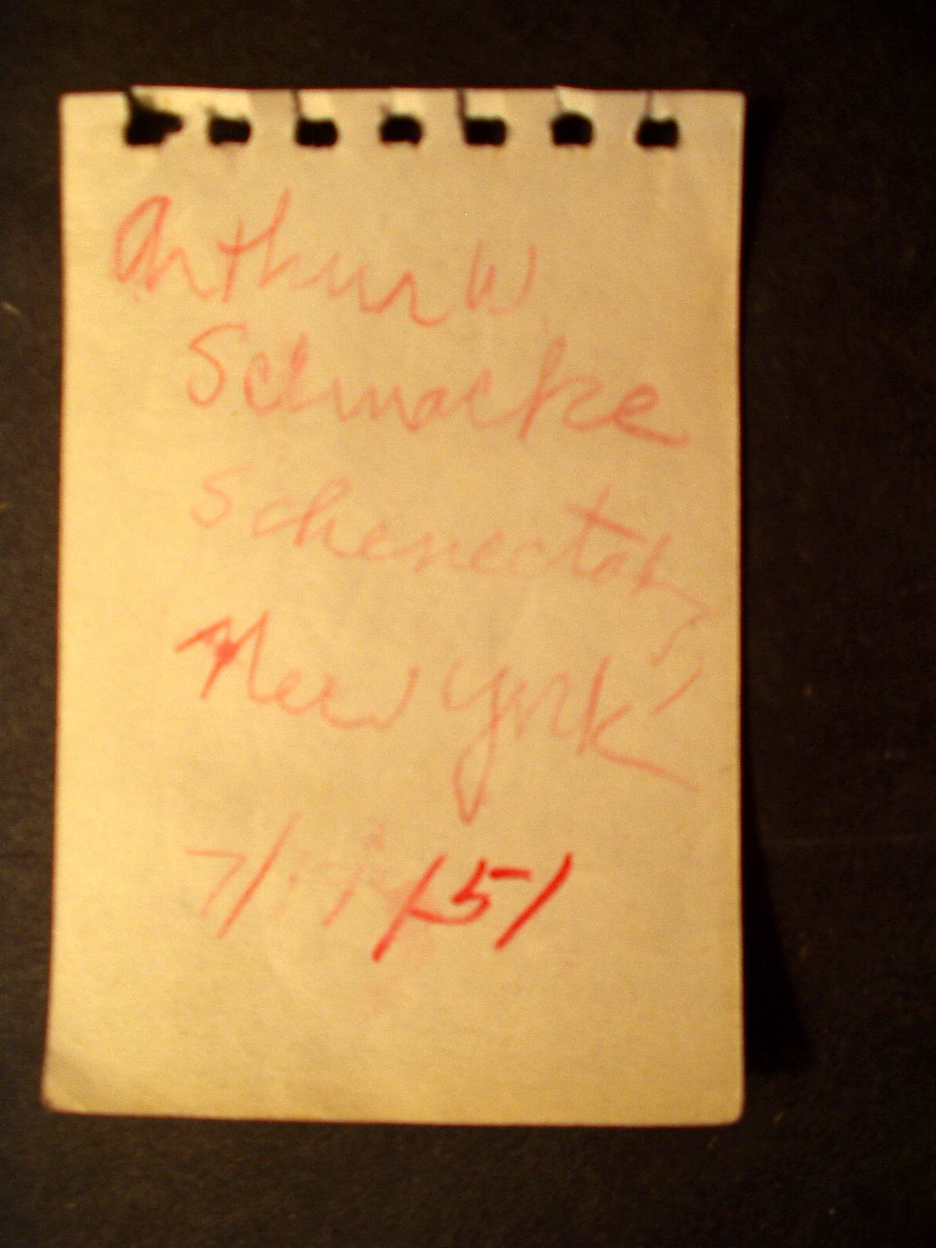 Arthur W.
Schmacke
Schenectady
New York
7/ /51